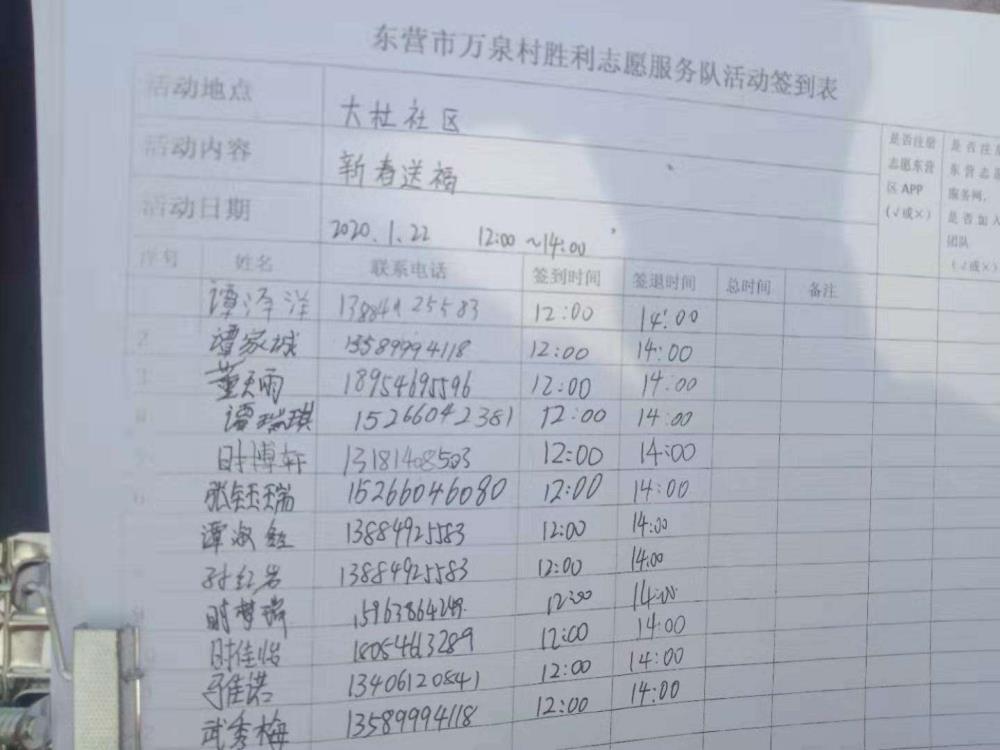 东营市万泉村胜利志愿服务队活动签到表
活动地点 大杜社区
活动内容 新春送福
活动日期 2020.1.22 12:00~14:00
是否注册
志愿东营
区APP
(√或×)
是否注册
东营志愿
服务网,
是否加入
团队
(√或×)
序号 姓名 联系电话 签到时间 签退时间 总时间 备注
谭泽洋 13884925583 12:00 14:00
2 谭家城 13589994118 12:00 14:00
3 董天雨 18954695596 12:00 14:00
4 谭瑞琪 15266042381 12:00 14:00
5 时博轩 13181408503 12:00 14:00
6 张钰瑞 15266046080 12:00 14:00
谭淑红 13884925583 12:00 14:00
孙红岩 13884925583 12:00 14:00
时梦瑞 12:00 14:00
时佳怡 18054613289 12:00 14:00
马佳诺 13406120841 12:00 14:00
武秀梅 13589994118 12:00 14:00